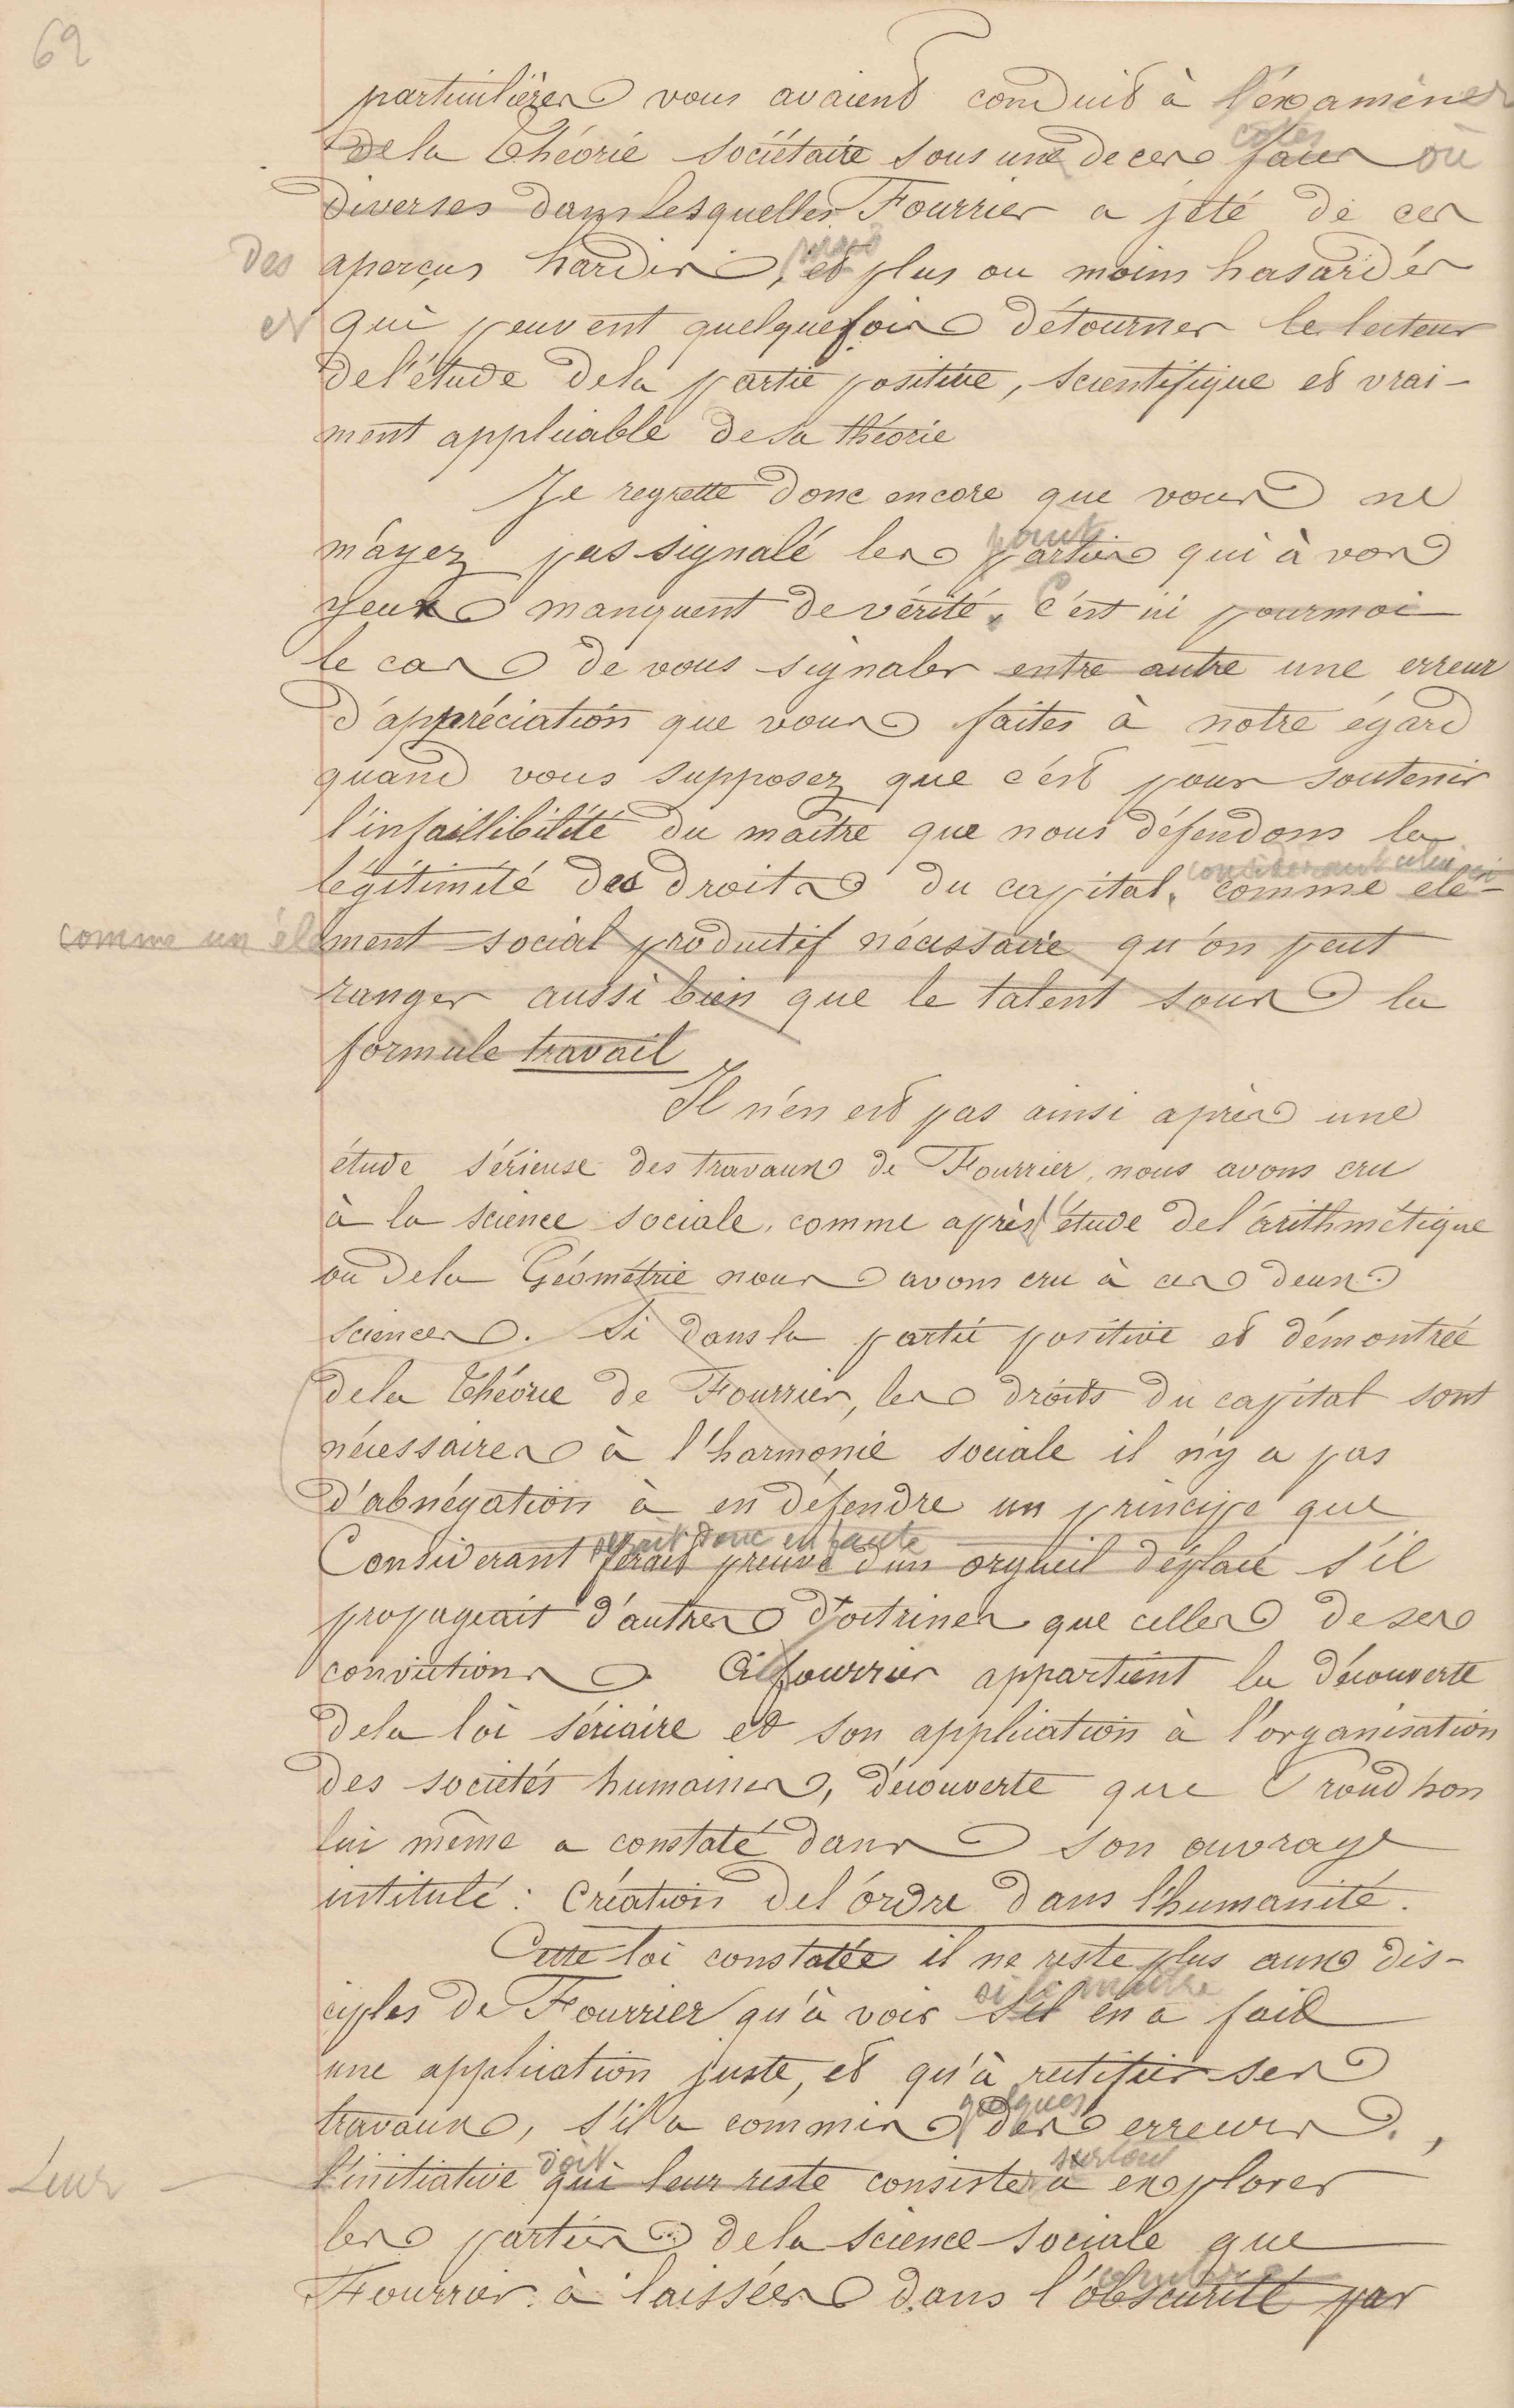 69
particulières vous avaient conduit à l'éxaminer
de la théorie sociétaire sous une de ces côtés faces où
diverses dans lesquelles Fourrier a jété de ces
des aperçus hardis, et plus ou moins hasardés
et qui peuvent quelquefois détourner le lecteur
de l'étude de la partie positive, scientifique et vrai-
ment applicable de sa théorie
Je regrette donc encore que vous ne
m'ayez pas signalé les points parties qui à vos
yeux manquent de vérité. C'est ici pour moi
le cas de vous signaler entre autre une erreur
d'appréciation que vous faites à notre égard
quand vous supposez que c'est pour soutenir
l'infaillibilité du maître que nous défendons la
légitimité des droits du capital, considérant celui ci comme élé-
comme un élément social productif nécessaire qu'on peut
ranger aussi bien que le talent sous la
formule travail
Il n'en est pas ainsi après une
étude sérieuse des travaux de Fourrier, nous avons cru
à la science sociale, comme après l'étude de l'arithmétique
ou de la Géométrie nous avons cru à ces deux
sciences. Si dans la partie positive et démontrée
de la théorie de Fourrier, les droits du capital sont
nécessaires à l'harmonie sociale il n'y a pas
d'abnégation à en défendre un principe que
serait donc en faute
Considerant ferait preuve d'un orgueil déplacé s'il
propageait d'autres doctrines que celles de ses
convictions. À fourrier appartient la découverte
de la loi sériaire et son application à l'organisation
des sociétés humaines, découverte que Proudhon
lui même a constaté dans son ouvrage
intitulé : Création de l'ordre dans l'humanité.
Cette loi constatée il ne reste plus aux dis-
ciples de Fourrier qu'à voir si le maître s'il en a fait
une application juste, et qu'à rectifier ses
travaux, s'il a commis quelques des erreurs.,
Leur l'initiative doit qui leur reste consiste surtout à explorer
les parties de la science sociale que
Fourrier à laissées dans l'obscurité par